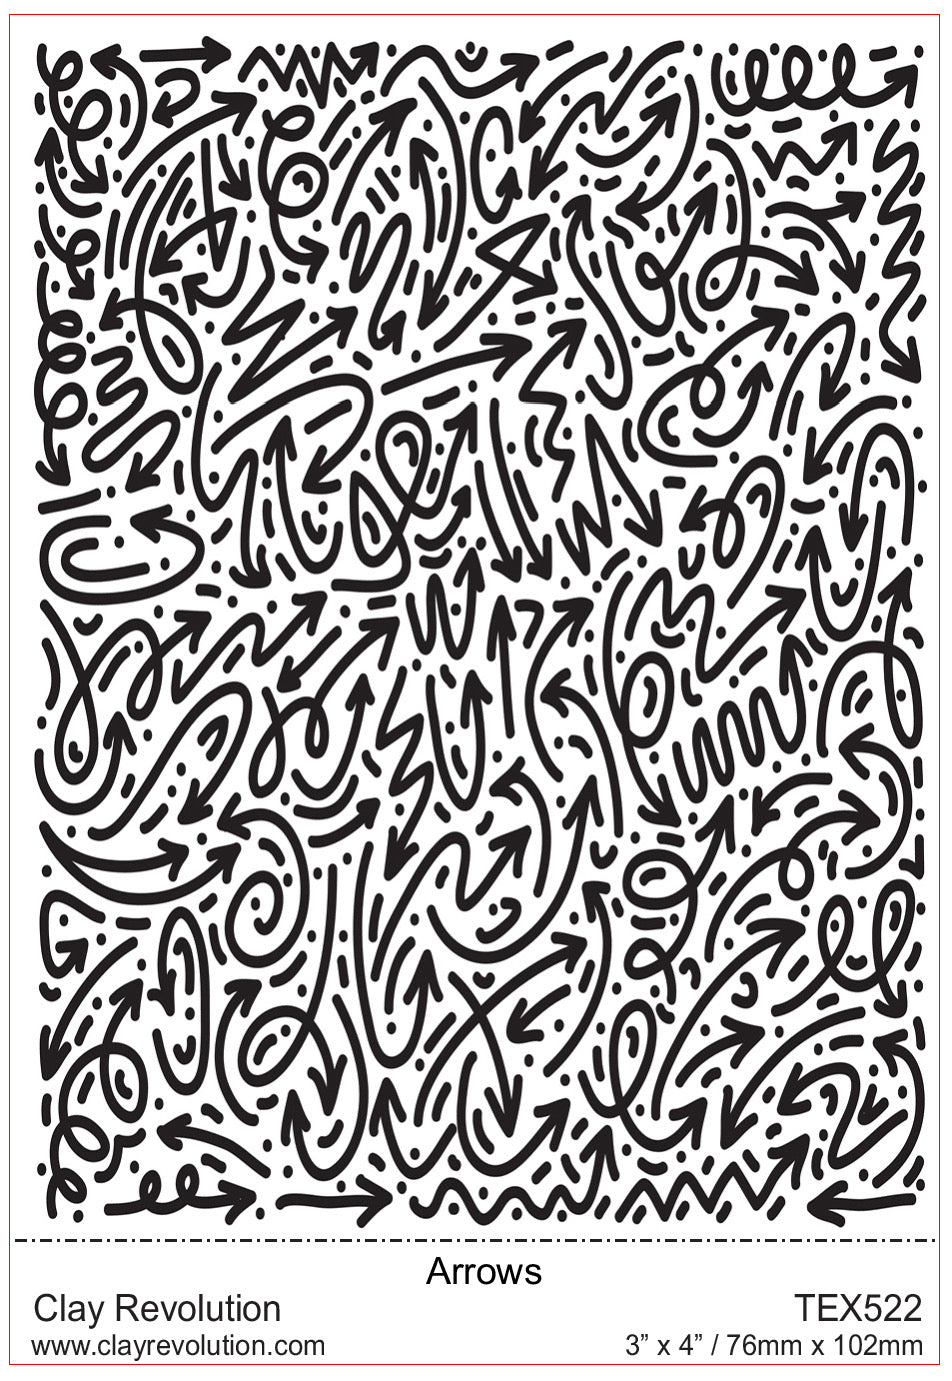 Arrows
Clay Revolution TEX522
www.clayrevolution.com 3” x 4” / 76mm x 102mm